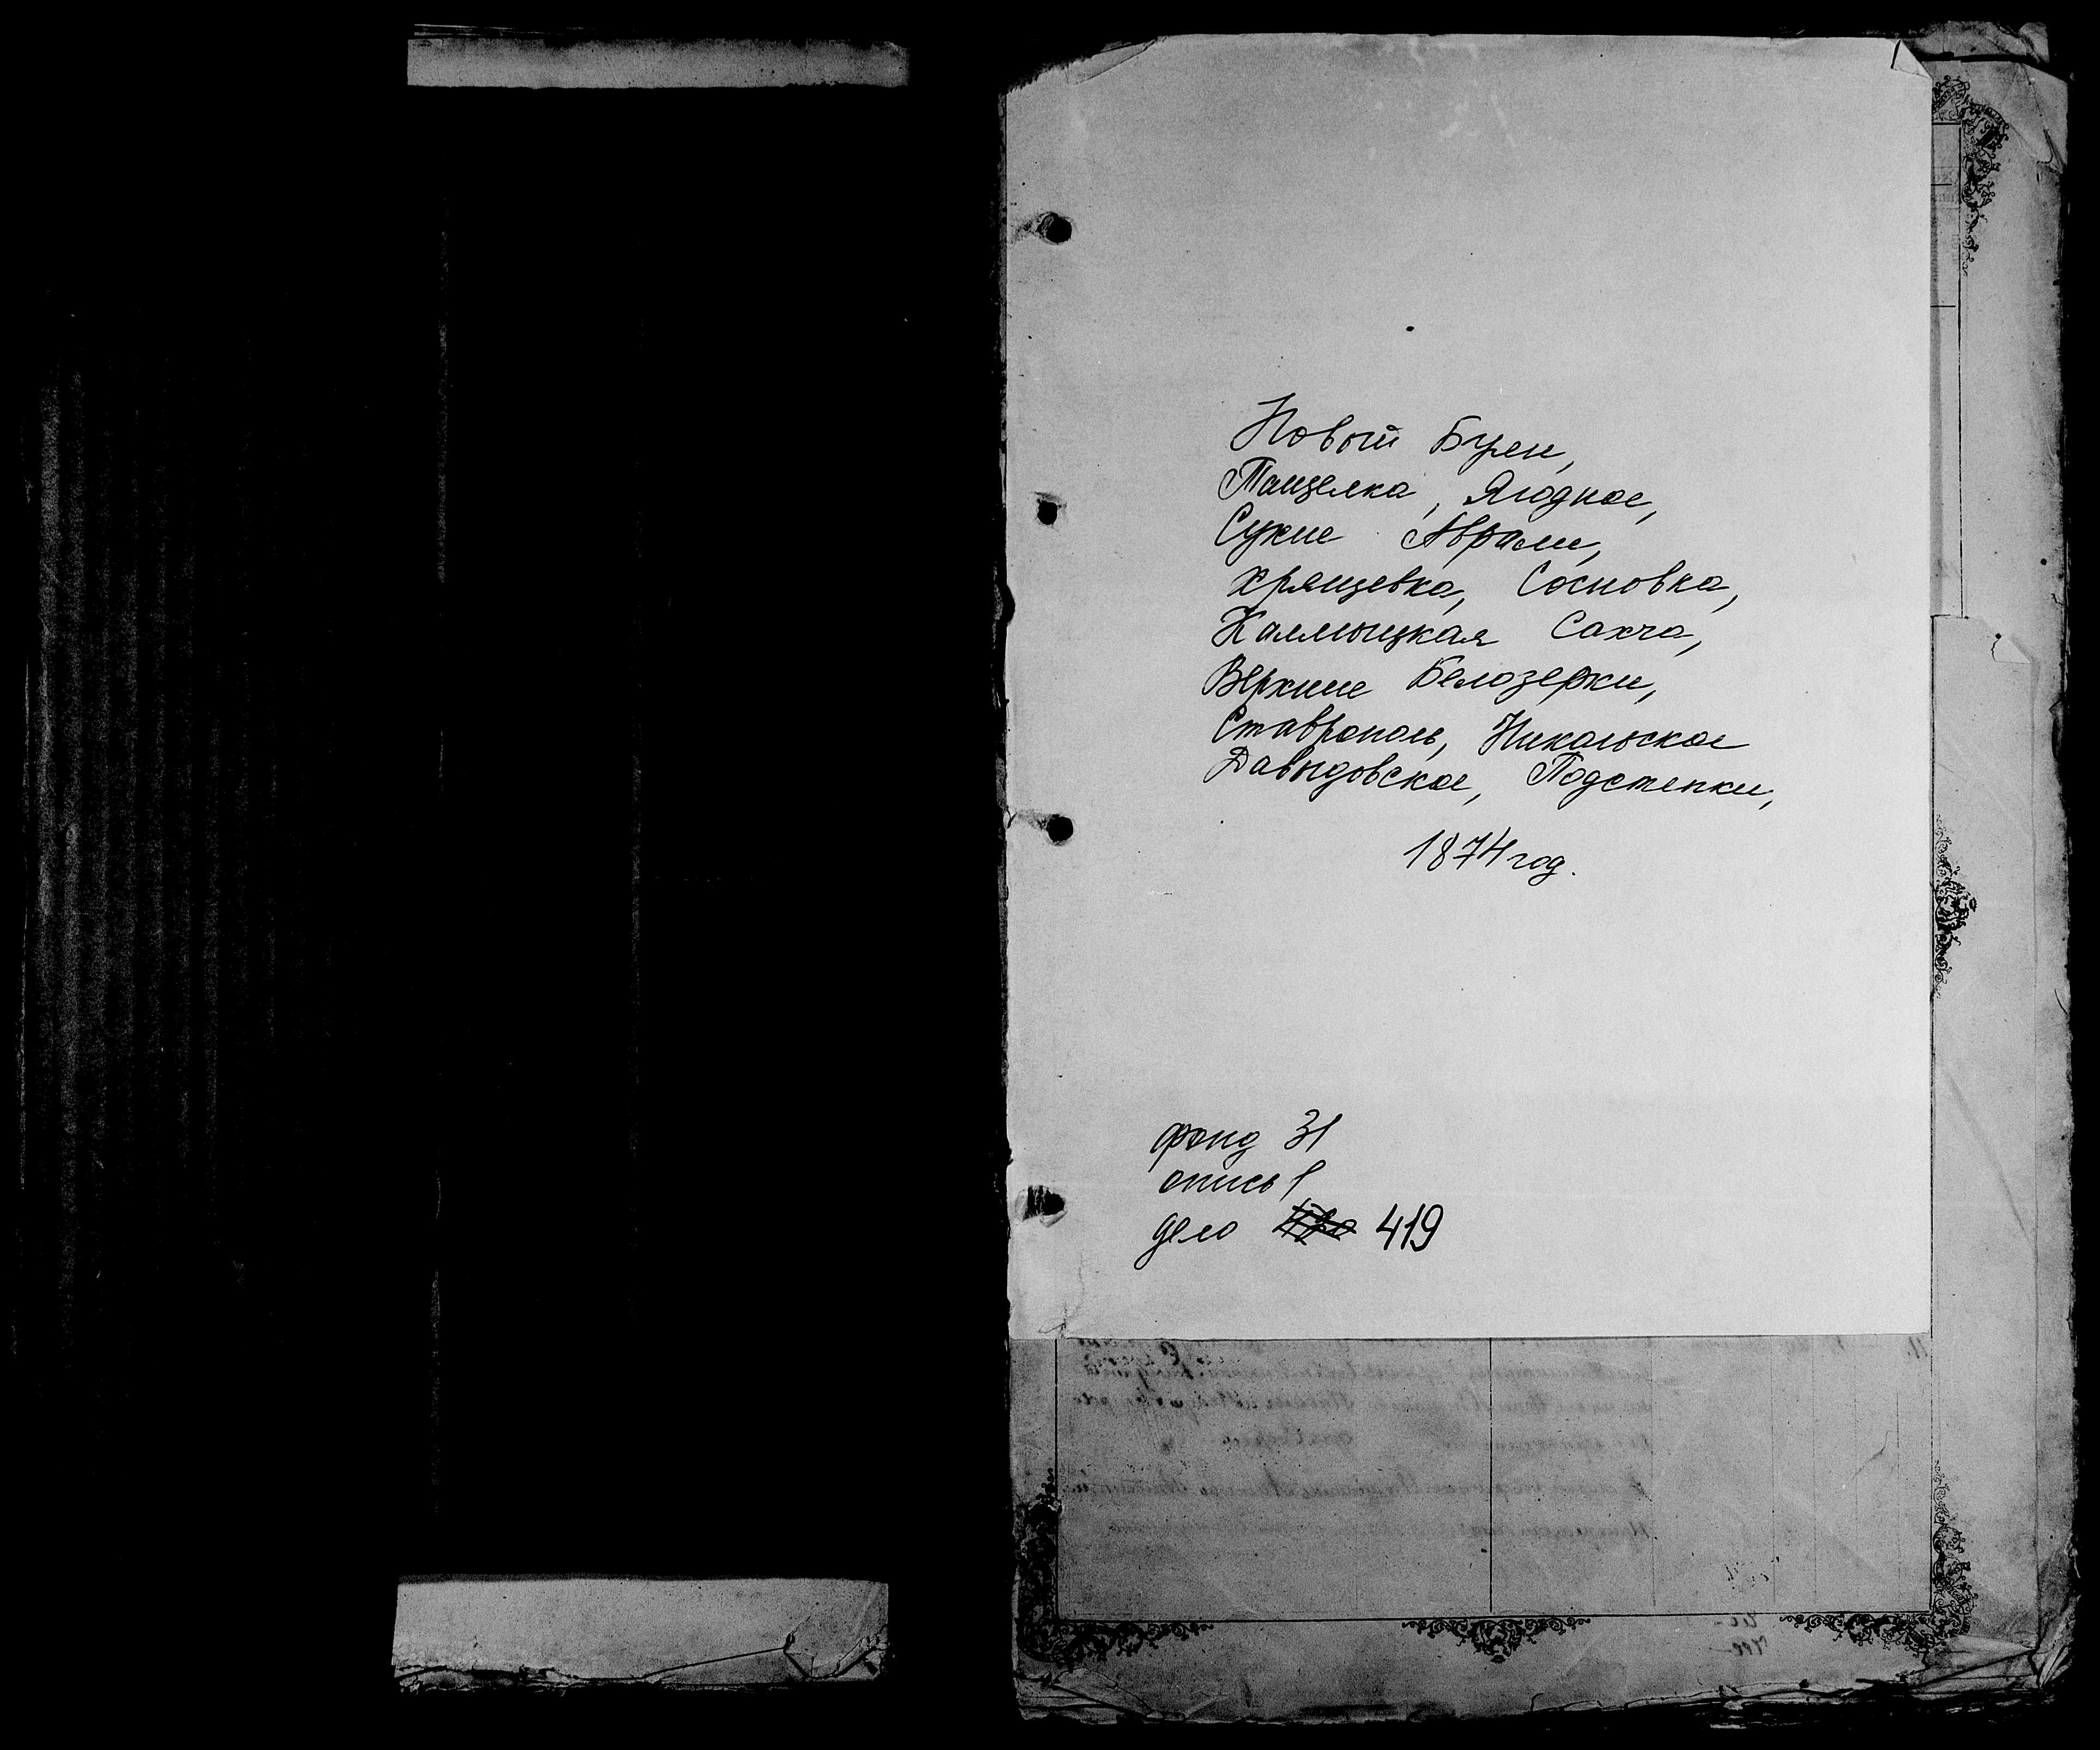 Новый Буян,
Танцелка, Ягодное,
Сухие Аврали,
Хрящевка, Сосновка,
Калмыцкая Сахча,
Верхние Белозерки,
Ставрополь, Никольское
Давыдовское, Подстепки,
1874 год.
фонд 31
опись 1
дело 419